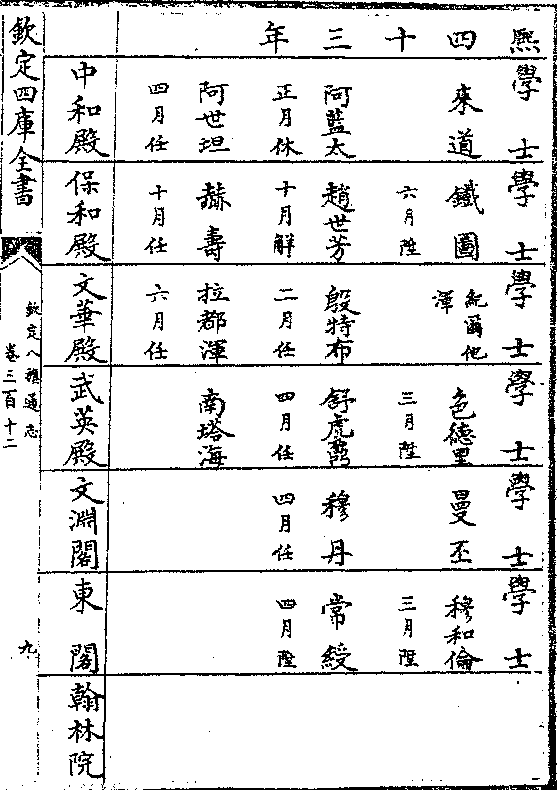 熙四十三年
學士 學士 學士 學士 學士 學士
來道 鐵圖 紀爾他渾 色德里 曼丕 穆和倫
六月陞 三月陞 三月陞
阿藍太 趙世芳 殷特布 舒虎 穆丹 常綬
正月休 十月解 二月任 四月任 四月任 四月陞
阿世坦 赫壽 拉都渾 南塔海
四月任 十月任 六月任
中和殿 保和殿 文華殿 武英殿 文淵閣 東閣 翰林院
欽定四庫全書
欽定八旗通志
卷三百十二
九